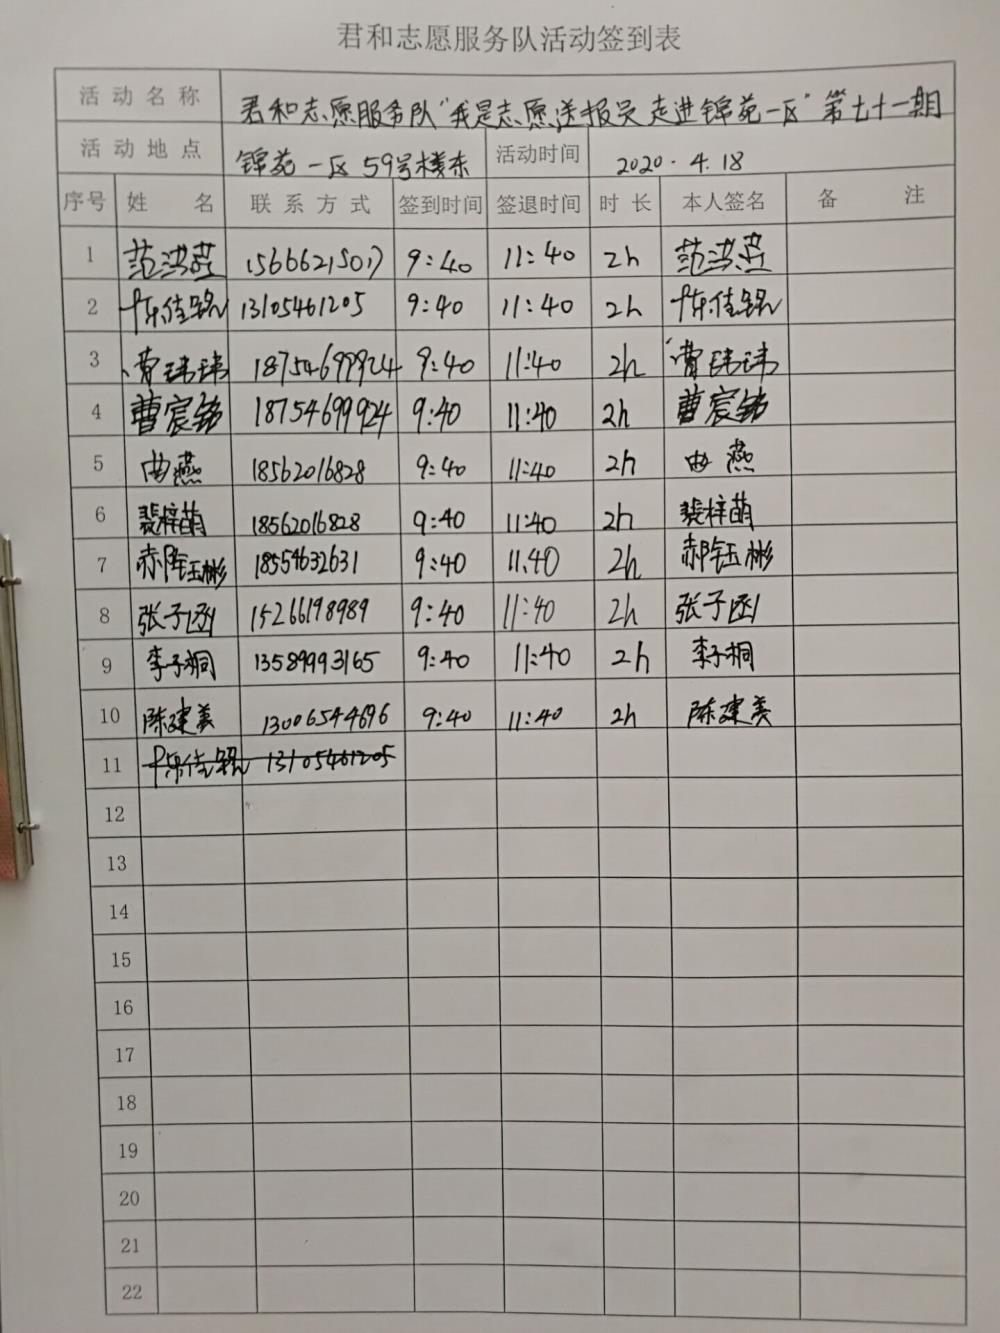 君和志愿服务队活动签到表
活动名称 君和志愿服务队"我是志愿送报员 走进锦苑一区"第七十一期
活动地点 锦苑一区59号楼东 活动时间 2020.4.18
序号 姓名 联系方式 签到时间 签退时间 时长 本人签名 备注
1 范洪燕 15666215017 9:40 11:40 2h 范洪燕
2 陈佳锦 13105461205 9:40 11:40 2h 陈佳锦
3 曹玮玮 18754699924 9:40 11:40 2h 曹玮玮
4 曹宸铭 18754699924 9:40 11:40 2h 曹宸铭
5 曲燕 18562016828 9:40 11:40 2h 曲燕
6 裴梓萌 18562016828 9:40 11:40 2h 裴梓萌
7 郝钰彬 18554632631 9:40 11.40 2h 郝钰彬
8 张子函 15266198989 9:40 11:40 2h 张子函
9 李子桐 13589993165 9:40 11:40 2h 李子桐
10 陈建美 13006544696 9:40 11:40 2h 陈建美
11 陈佳锦 13105461205
12
13
14
15
16
17
18
19
20
21
22